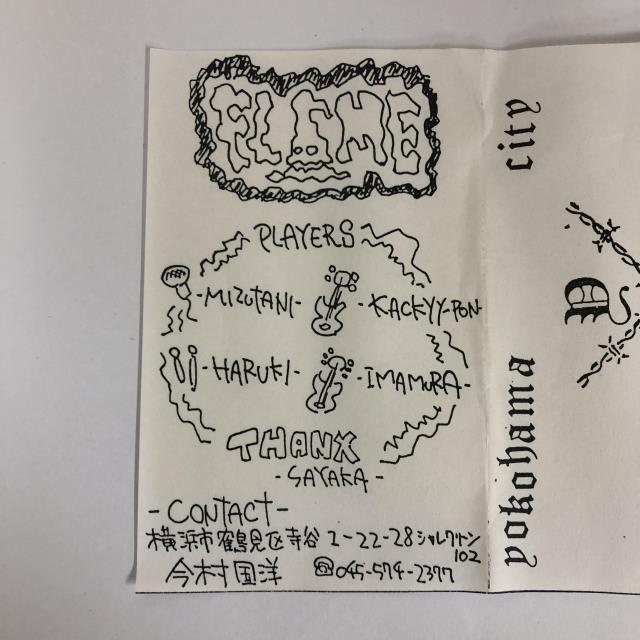 FLAME
PLAYERS
-MIZUTANI- -KACKYY-PON
-HARUKI- -IMAMURA-
THANX
-SAYAKA-
-CONTACT-
横浜市鶴見区寺谷 2-22-28 シャレクリトン
102
今村国洋 ☎045-574-2377
yokohama city